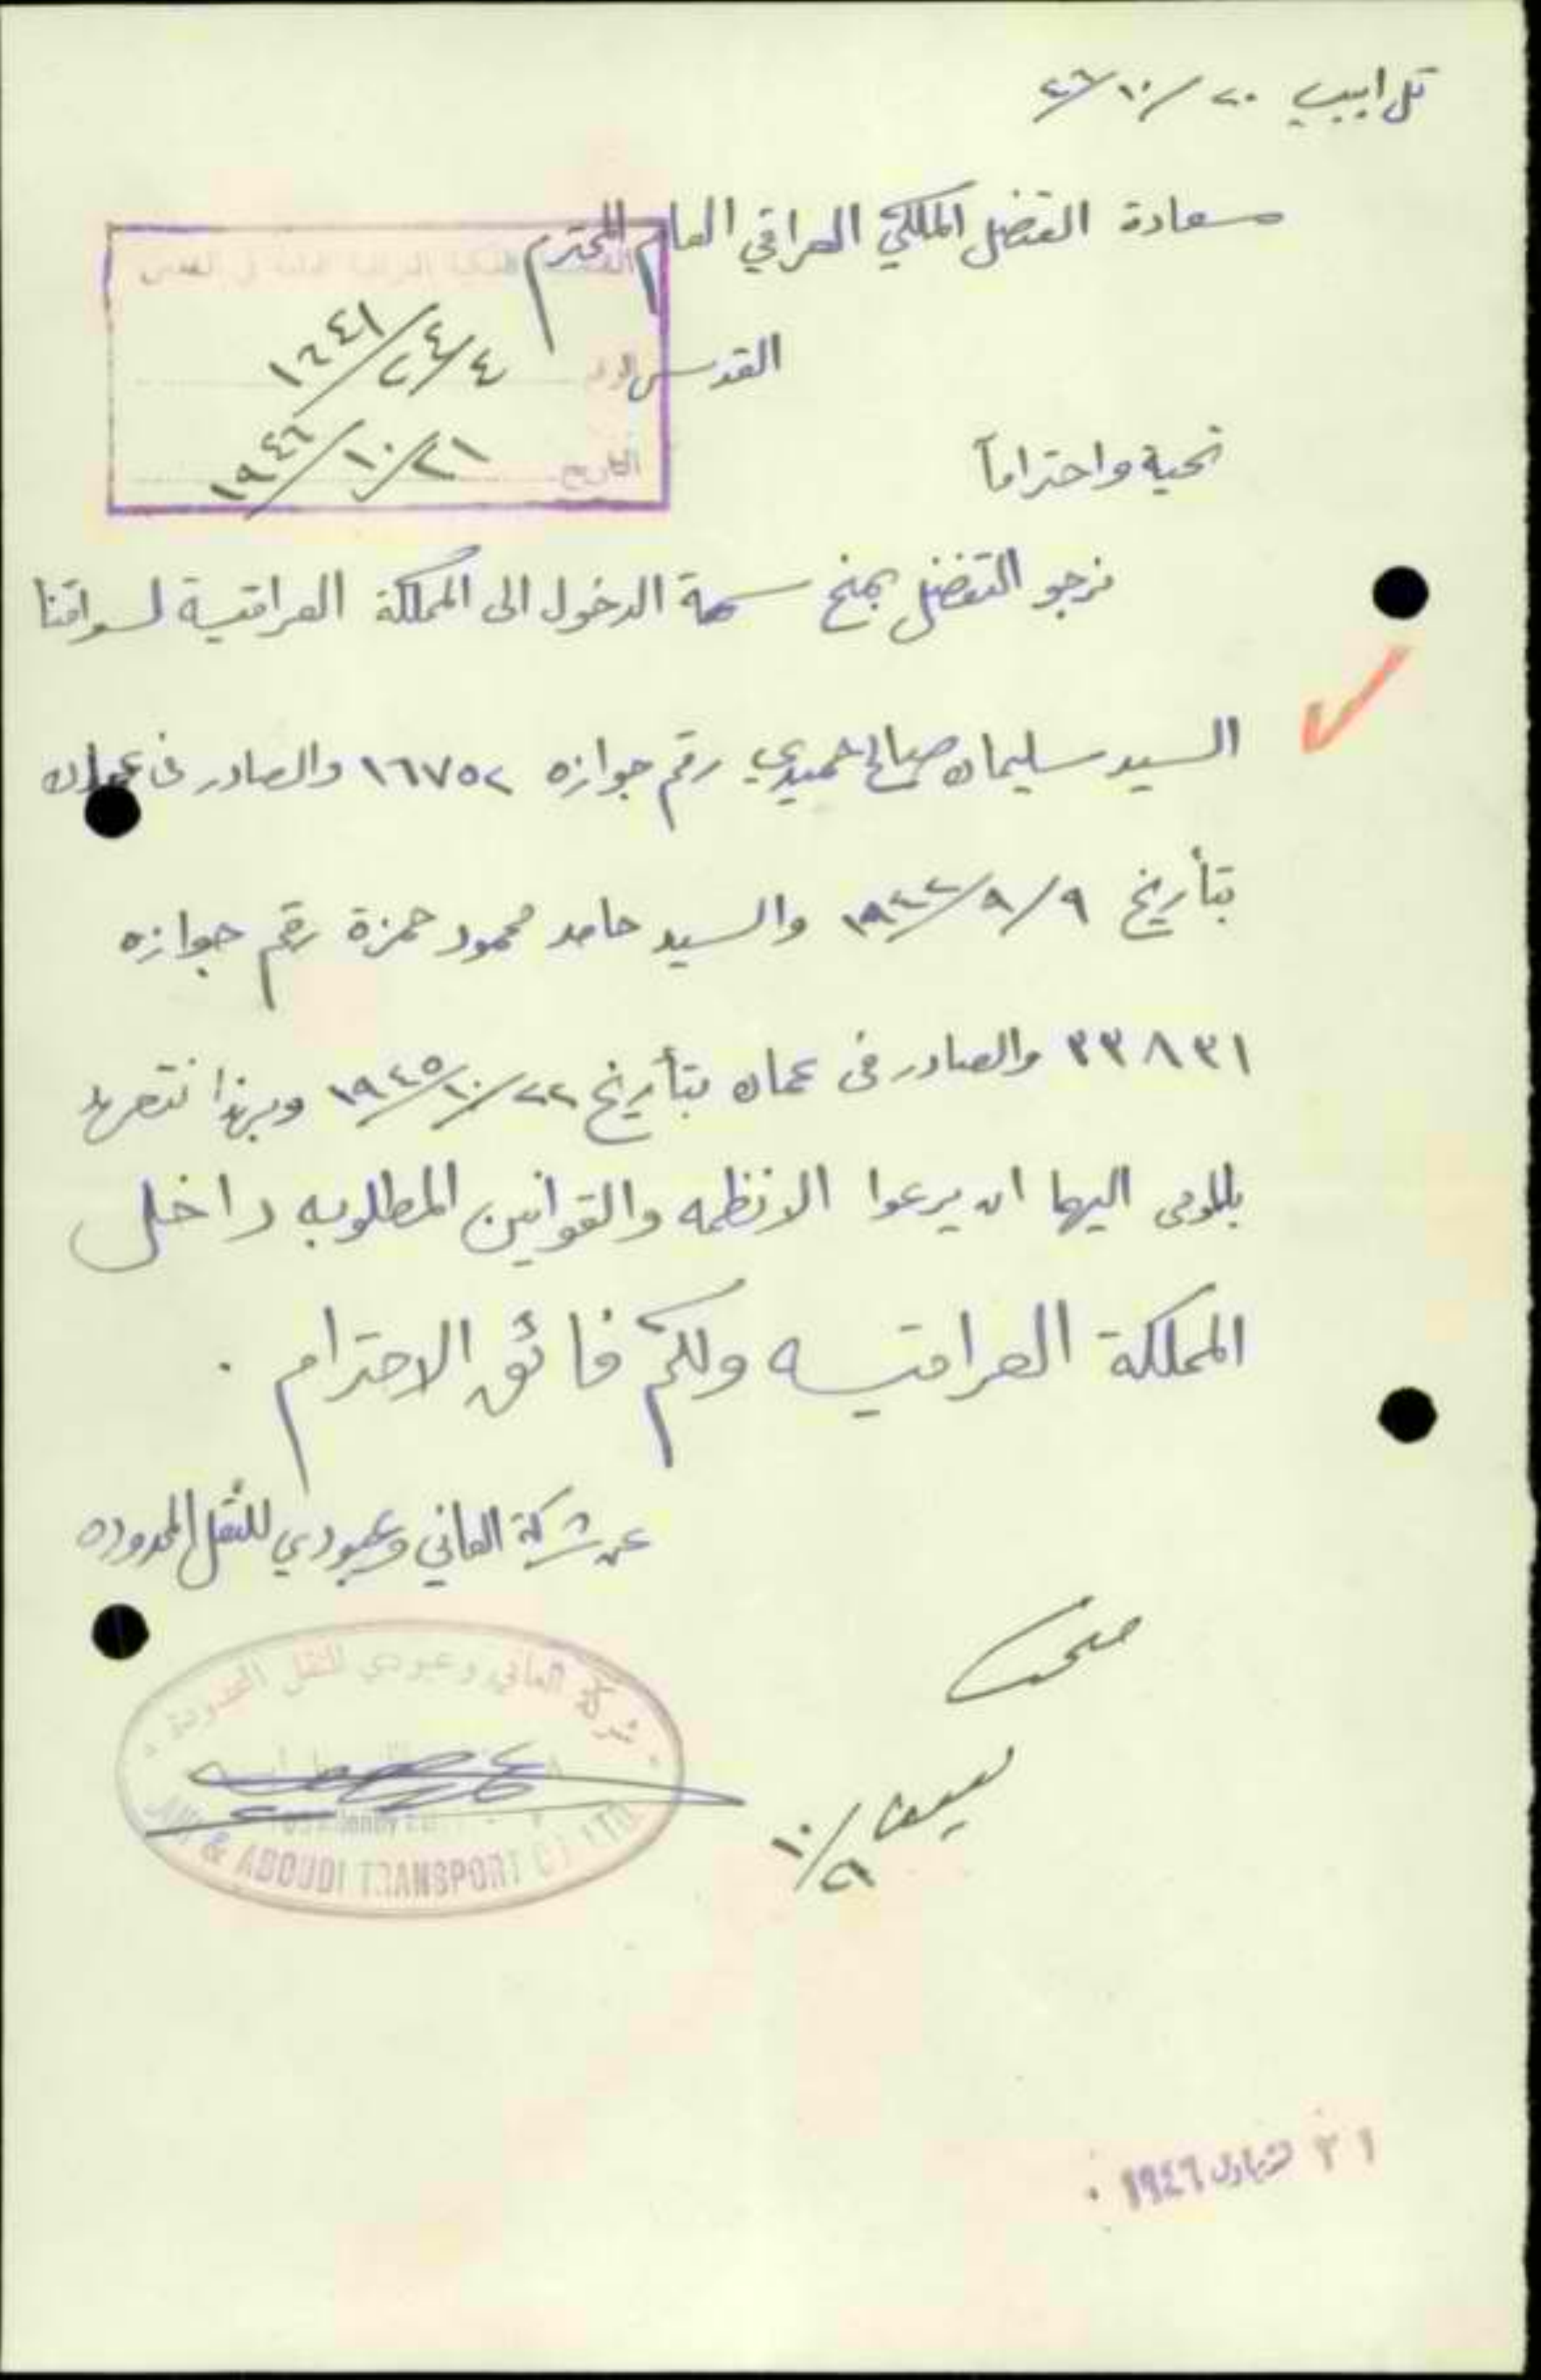 تل ابيب ٢٠/١٠/٤٦
سعادة القنصل الملكي العراقي العام المحترم
القدس
١٦٤١/٢٤/٤
التاريخ ٢١/١٠/١٩٤٦
تحية واحتراماً
نرجو التفضل بمنح سمة الدخول الى المملكة العراقية لسواقنا
السيد سليمان صالح حميدي رقم جوازه ١٦٧٥٢ والصادر في عمان
بتأريخ ٩/٩/١٩٤٢ والسيد حامد محمود حمزة رقم جوازه
٣٣٨٣١ والصادر في عمان بتأريخ ٢٢/١٠/١٩٤٥ وبهذا نتعهد
بالمومى اليهما ان يرعوا الانظمه والقوانين المطلوبه داخل
المملكة العراقيه ولكم فائق الاحترام .
عن شركة العاني وعبودي للنقل المحدوده
شركة العاني وعبودي للنقل المحدودة
& ABOUDI TRANSPORT
١٠/٢١
٢١ تشرين اول ١٩٤٦